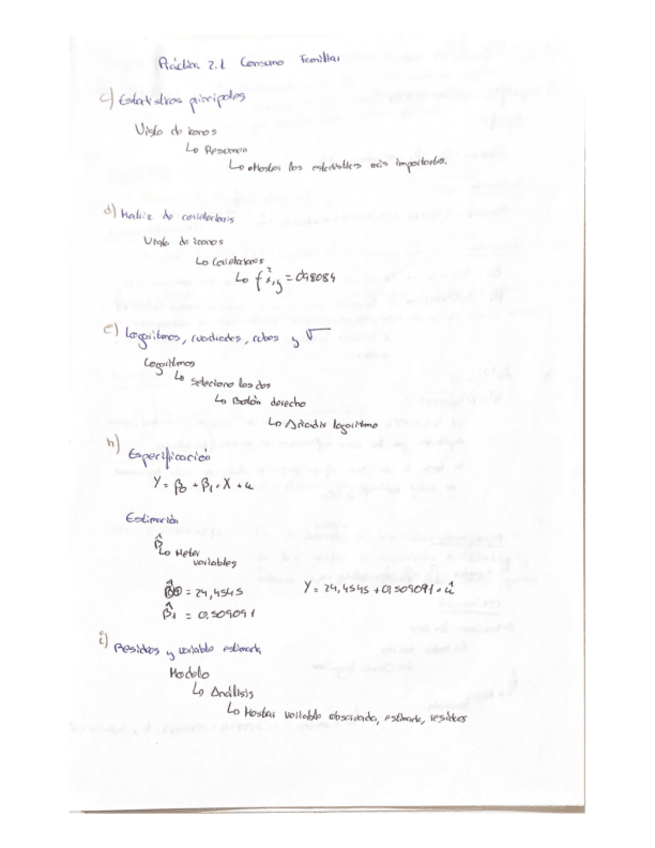 Práctica 2.1 Consumo Familiar
c) Estadísticos principales
Vista de iconos
Lo Resumen
Lo Mostar los estadísticos más importantes.
d) Matriz de correlaciones
Vista de iconos
Lo Correlaciones
Lo r²x,y = 0,98084
e) Logaritmos, cuadrados, cubos y √
Logaritmos
Lo Selecciono los dos
Lo Botón derecho
Lo Añadir logaritmo
h) Especificación
Y = β0 + β1 · X + u
Estimación
β̂
Lo Meter
variables
β̂0 = 24,4545
Y = 24,4545 + 0,509091 · û
β̂1 = 0,509091
i) Residuos y variable estimada
Modelo
Lo Análisis
Lo Mostar variable observada, estimada, residuos